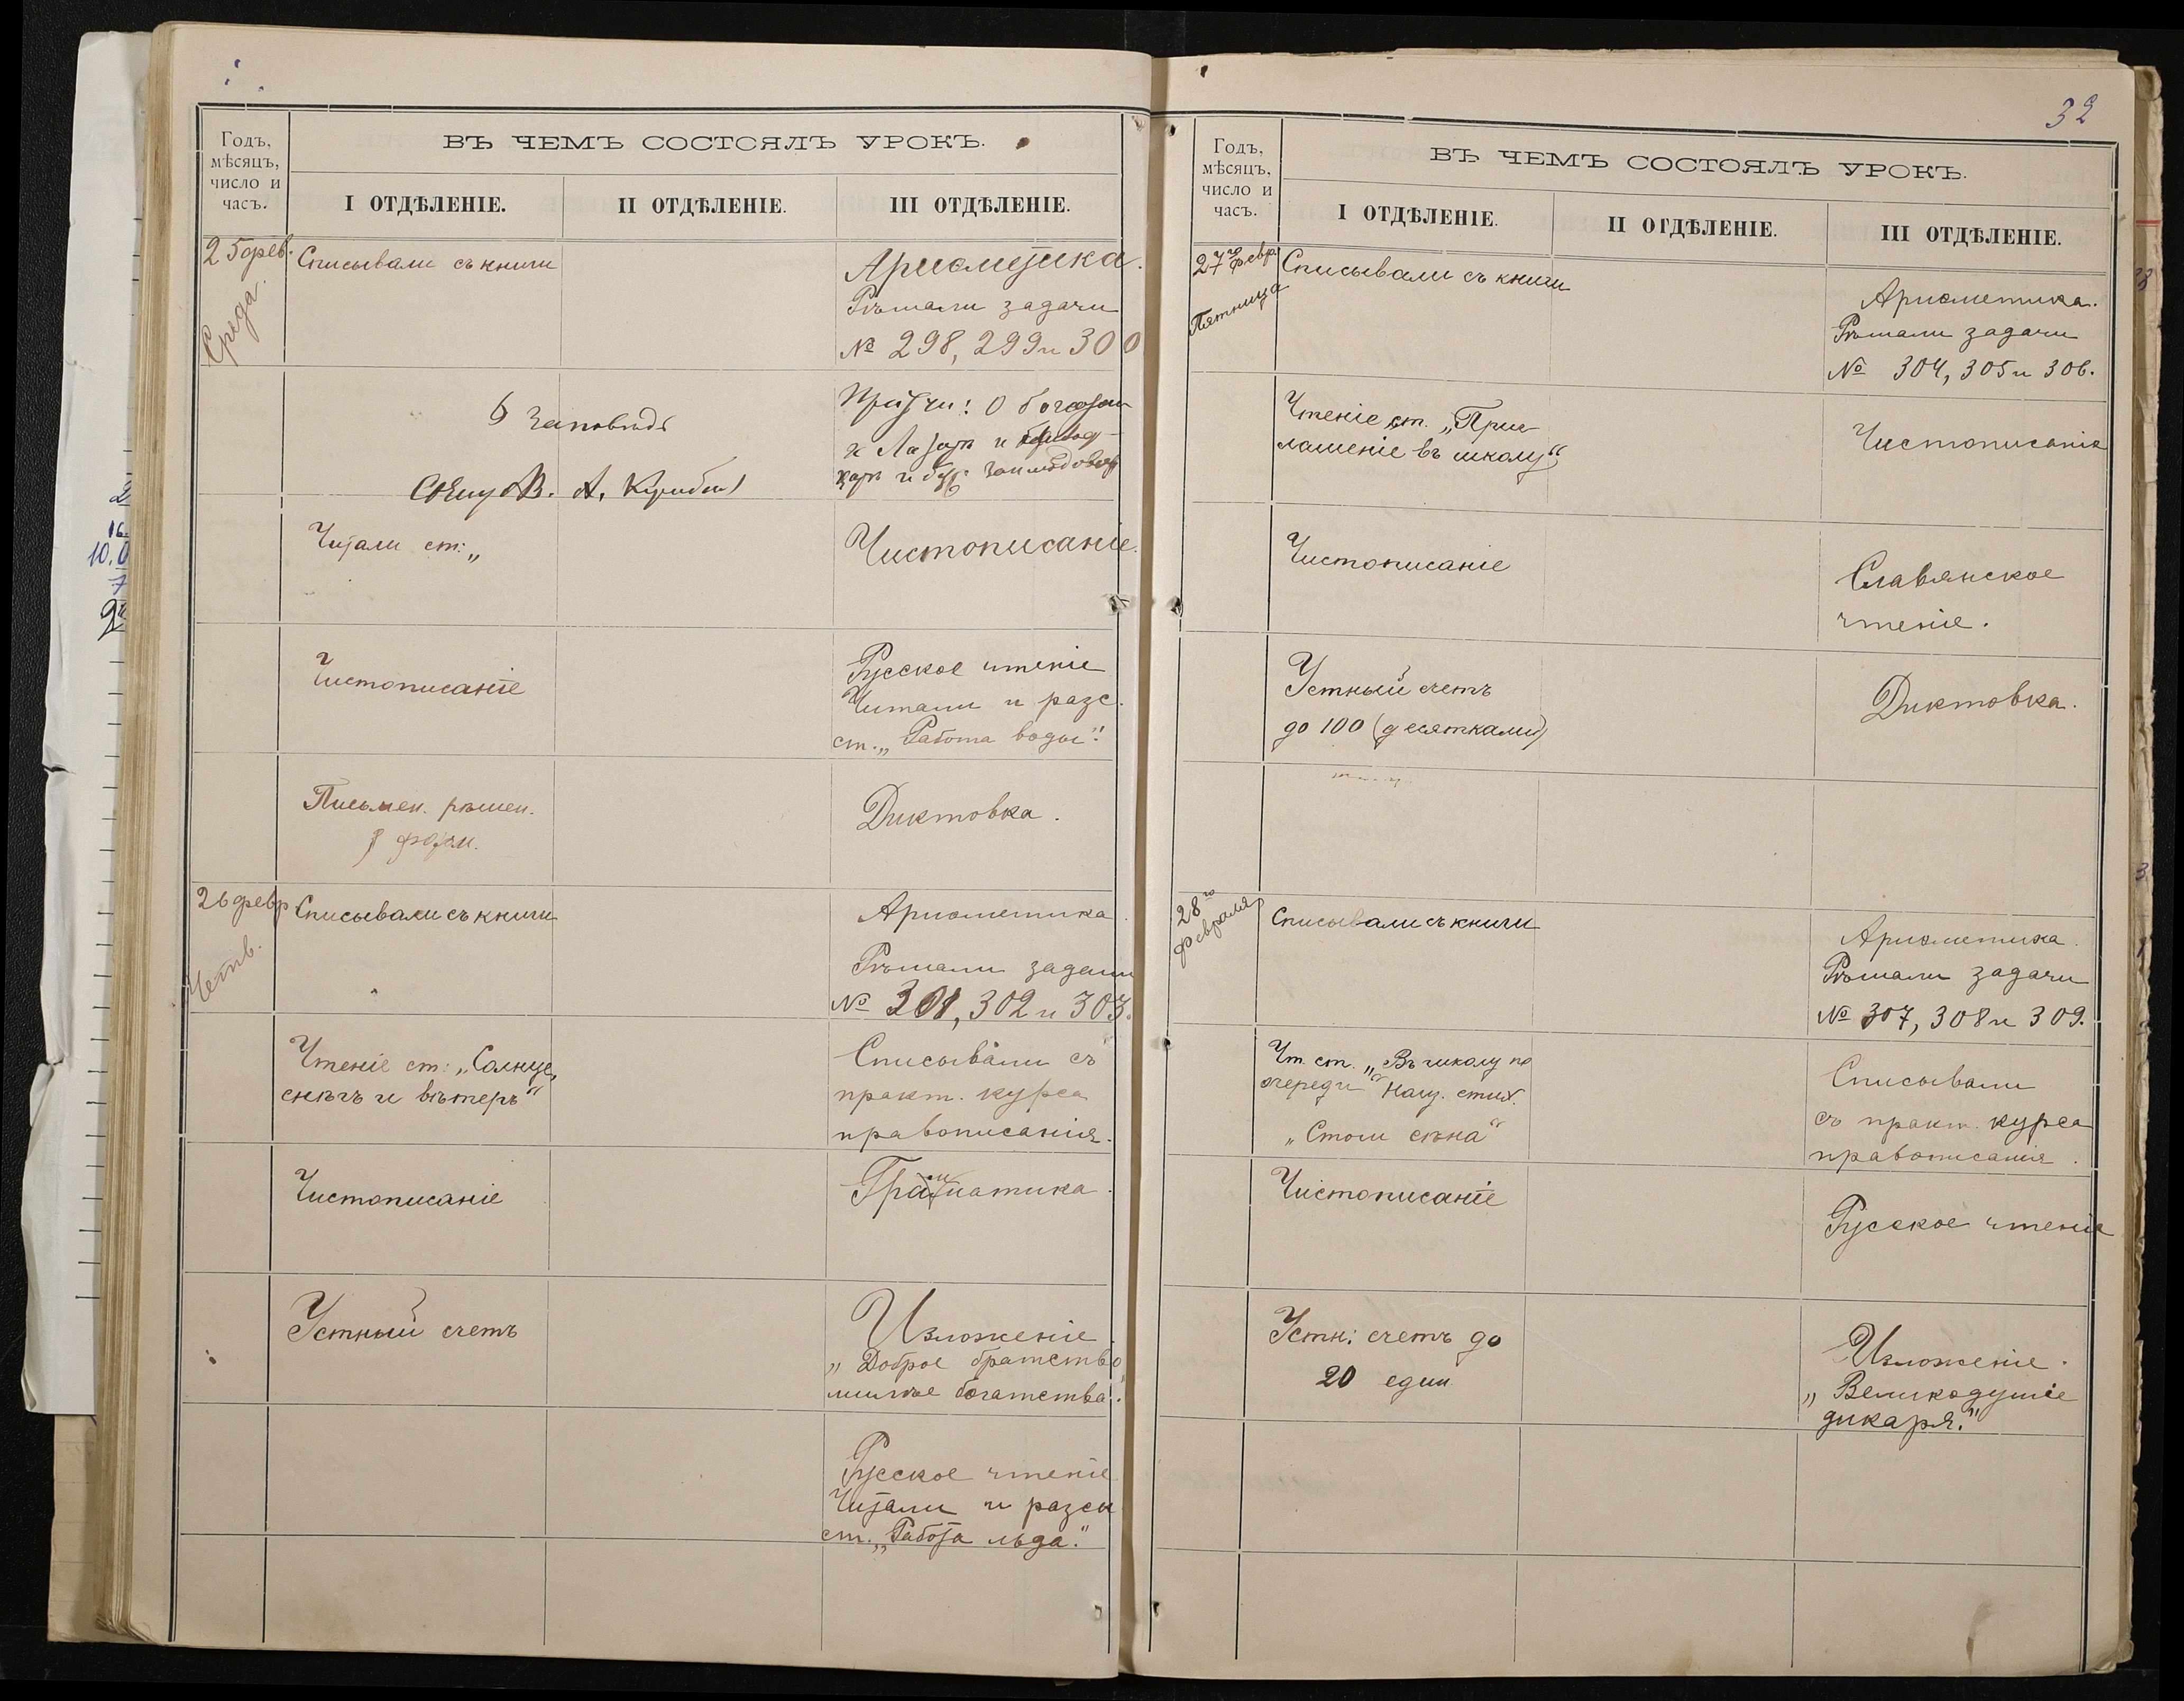 Годъ,
мѣсяцъ,
число и
часъ.
ВЪ ЧЕМЪ СОСТОЯЛЪ УРОКЪ.
I ОТДѢЛЕНІЕ.
II ОТДѢЛЕНІЕ.
III ОТДѢЛЕНІЕ.
25 фев.
Среда.
Списывали съ книги
Ариѳметика.
Рѣшали задачи
№ 298, 299 и 300
6 заповѣдь
Притчи: О богатом
и Лазарѣ и
Свящ. В. А.
Читали ст: „
Чистописаніе.
Чистописаніе
Русское чтеніе
Читали и разс.
ст. „Работа воды".
Письмен. рѣшен.
Диктовка.
26 февр
Четв.
Списывали съ книги
Ариѳметика.
Рѣшали задачи
№ 301, 302 и 303.
Чтеніе ст: „Солнце,
снѣгъ и вѣтеръ"
Списывали съ
практ. курса
правописанія.
Чистописаніе
Грамматика.
Устный счетъ
Изложеніе.
„Доброе братство
милѣе богатства".
Русское чтеніе.
Читали и разск
ст. „Работа льда."
32
Годъ,
мѣсяцъ,
число и
часъ.
ВЪ ЧЕМЪ СОСТОЯЛЪ УРОКЪ.
I ОТДѢЛЕНІЕ.
II ОТДѢЛЕНІЕ.
III ОТДѢЛЕНІЕ.
27 февр
Пятница
Списывали съ книги
Ариѳметика.
Рѣшали задачи
№ 304, 305 и 306.
Чтеніе ст. „Приг-
лашеніе въ школу"
Чистописаніе
Чистописаніе
Славянское
чтеніе.
Устный счетъ
до 100 (десятками)
Диктовка.
28го
февраля
Списывали съ книги
Ариѳметика.
Рѣшали задачи
№ 307, 308 и 309.
Чт. ст. „Въ школу по
очереди" Науч. стих.
„Стоги сѣна"
Списывали
съ практ. курса
правописанія.
Чистописаніе
Русское чтеніе
Устн: счетъ до
20 един.
Изложеніе.
„Великодушіе
дикаря."